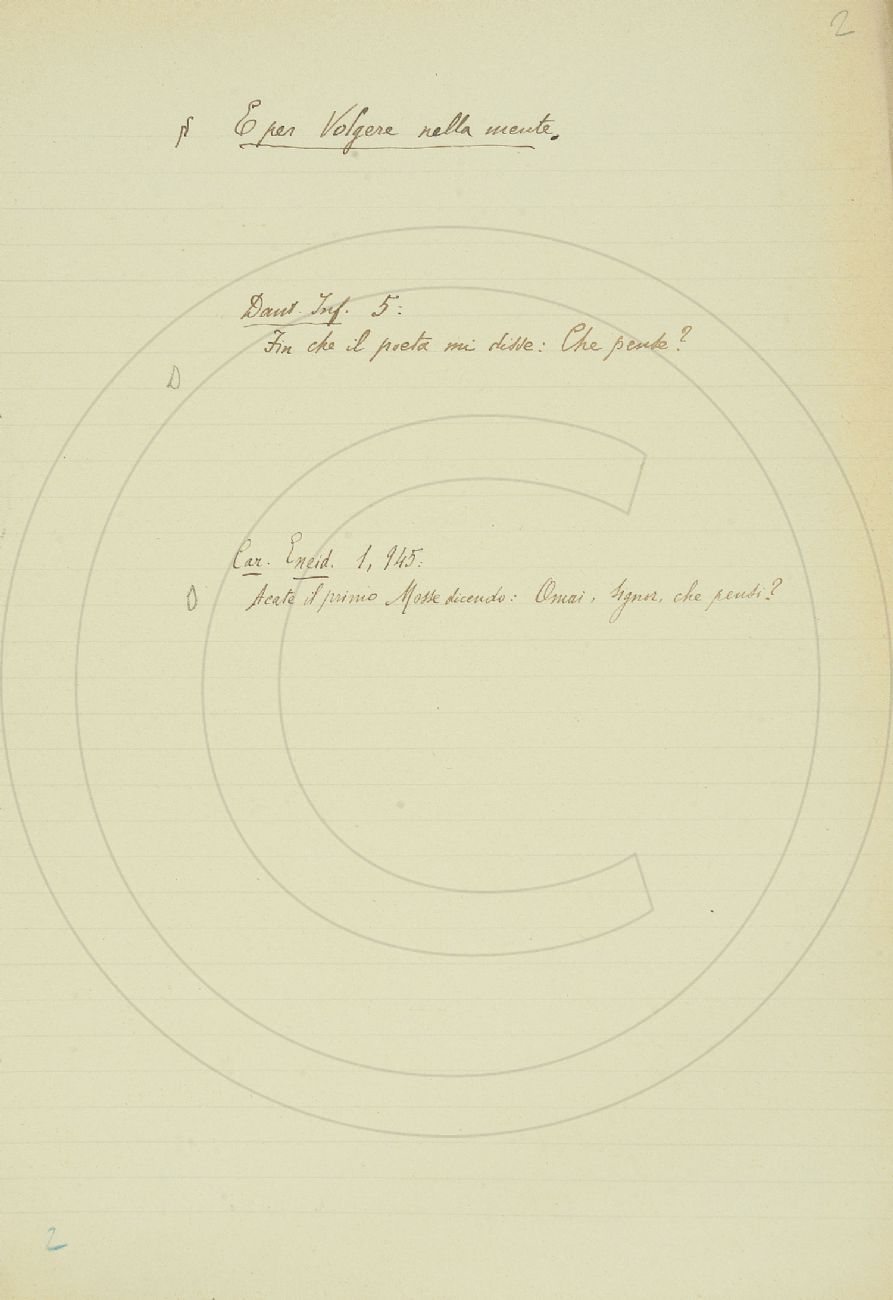 2
§ E per Volgere nella mente.
Dant. Inf. 5:
Fin che il poeta mi disse: Che pense?
D
Car. Eneid. 1, 945:
D Acate il primo Mosse dicendo: Omai, Signor, che pensi?
2